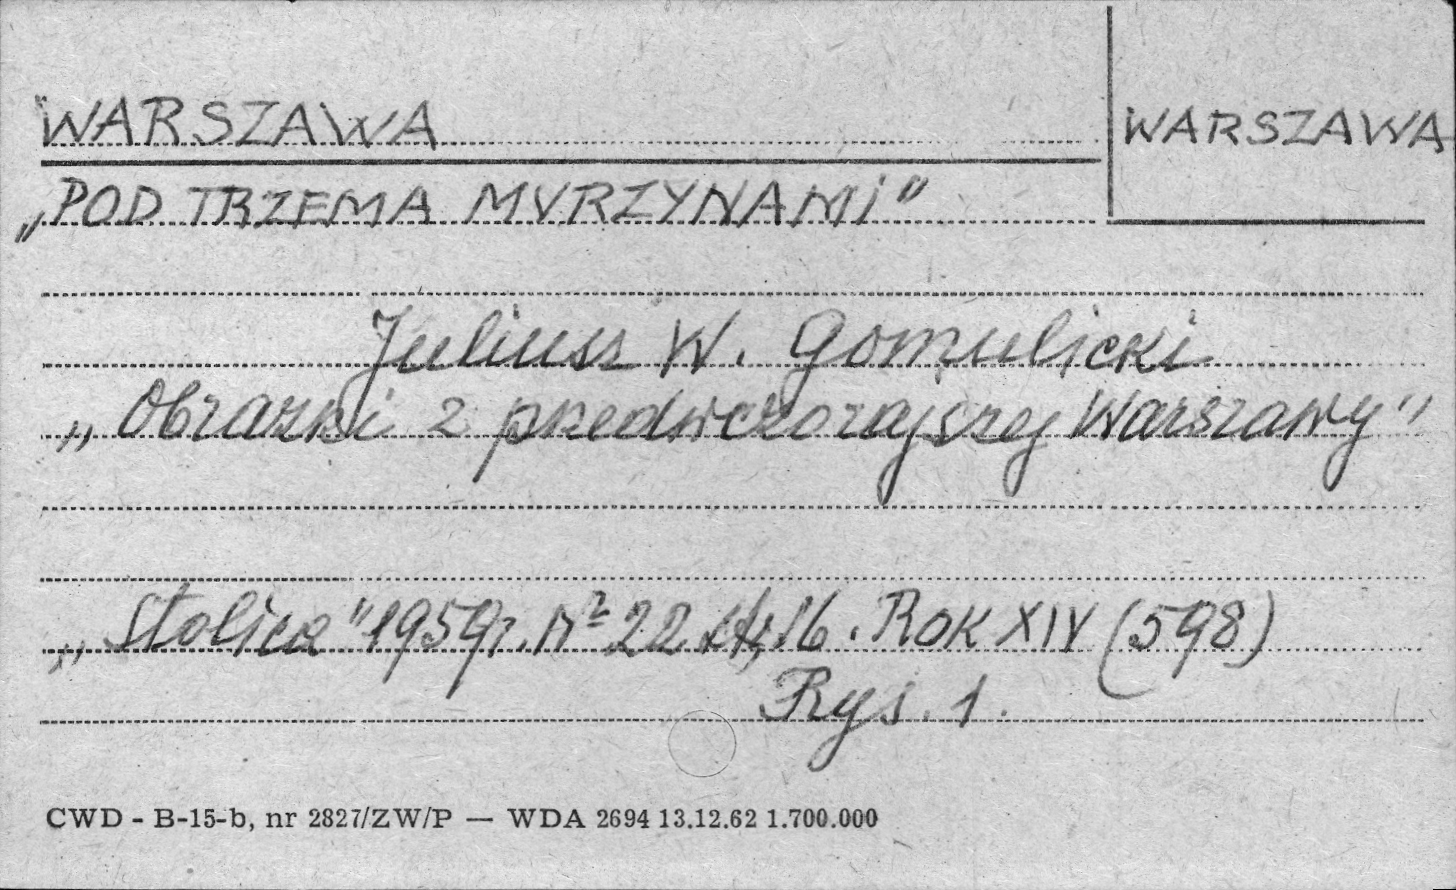 WARSZAWA
WARSZAWA
„POD TRZEMA MURZYNAMi"
Juliusz W. Gomulicki
„Obrazki z przedwczorajszej Warszawy"
„Stolica" 1959r. Nr 22 str. 16. ROK XIV (598)
Rys. 1.
CWD - B-15-b, nr 2827/ZW/P — WDA 2694 13.12.62 1.700.000